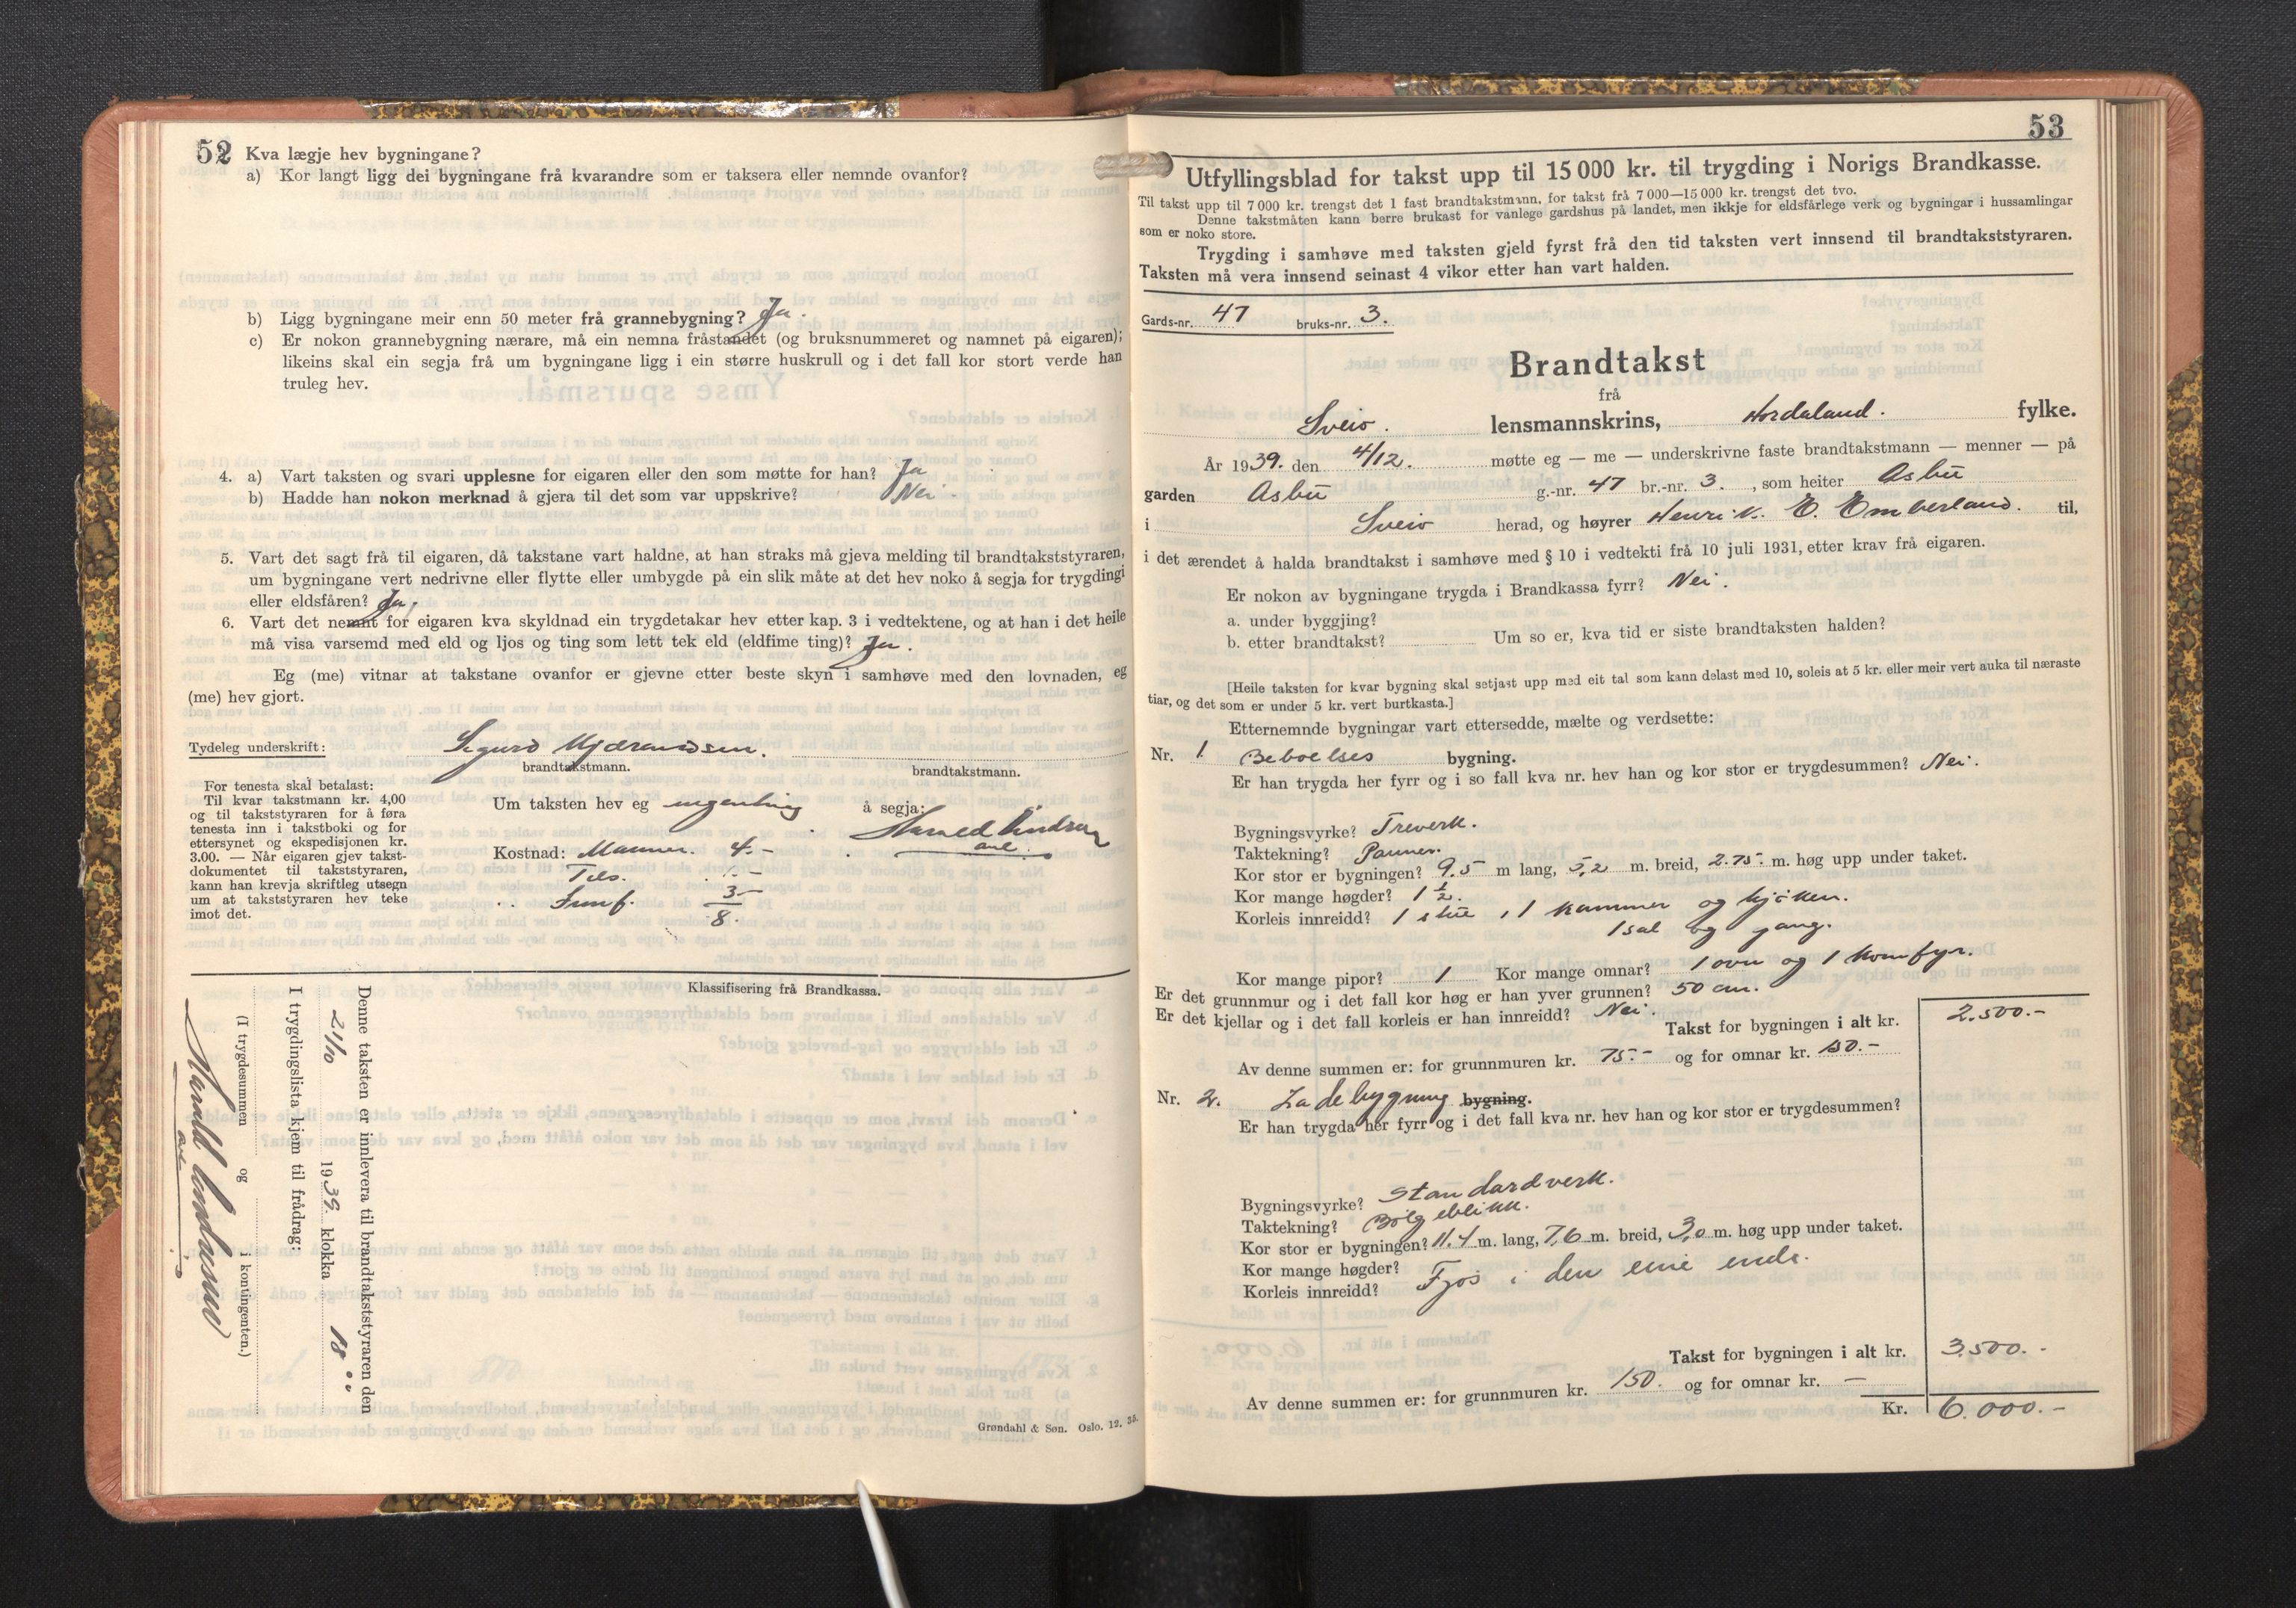 52
Kva lægje hev bygningane?
a) Kor langt ligg dei bygningane frå kvarandre som er taksera eller nemnde ovanfor?
b) Ligg bygningane meir enn 50 meter frå grannebygning? Ja.
c) Er nokon grannebygning nærare, må ein nemna fråstandet (og bruksnummeret og namnet på eigaren);
likeins skal ein segja frå um bygningane ligg i ein større huskrull og i det fall kor stort verde han
truleg hev.
4. a) Vart taksten og svari upplesne for eigaren eller den som møtte for han? Ja
b) Hadde han nokon merknad å gjera til det som var uppskrive? Nei.
5. Vart det sagt frå til eigaren, då takstane vart haldne, at han straks må gjeva melding til brandtakststyraren,
um bygningane vert nedrivne eller flytte eller umbygde på ein slik måte at det hev noko å segja for trygdingi
eller eldsfåren? Ja.
6. Vart det nemnt for eigaren kva skyldnad ein trygdetakar hev etter kap. 3 i vedtektene, og at han i det heile
må visa varsemd med eld og ljos og ting som lett tek eld (eldfime ting)? Ja.
Eg (me) vitnar at takstane ovanfor er gjevne etter beste skyn i samhøve med den lovnaden, eg
(me) hev gjort.
Tydeleg underskrift: Sigurd
brandtakstmann. brandtakstmann.
For tenesta skal betalast:
Til kvar takstmann kr. 4,00
og til takststyraren for å føra
tenesta inn i takstboki og for
ettersynet og ekspedisjonen kr.
3.00. — Når eigaren gjev takst-
dokumentet til takststyraren,
kann han krevja skriftleg utsegn
um at takststyraren hev teke
imot det.
Um taksten hev eg ingenting å segja:
Harald
Kostnad: 4.-
3-
8.
Klassifisering frå Brandkassa.
Denne taksten er innlevera til brandtakststyraren den
21/10 1939. klokka 18
I trygdingslista kjem til frådrag:
(I trygdesummen og i kontingenten.)
Harald
Grøndahl & Søn. Oslo. 12. 35.
53
Utfyllingsblad for takst upp til 15 000 kr. til trygding i Norigs Brandkasse.
Til takst upp til 7 000 kr. trengst det 1 fast brandtakstmann, for takst frå 7 000—15 000 kr. trengst det tvo.
Denne takstmåten kann berre brukast for vanlege gardshus på landet, men ikkje for eldsfårlege verk og bygningar i hussamlingar
som er noko store.
Trygding i samhøve med taksten gjeld fyrst frå den tid taksten vert innsend til brandtakststyraren.
Taksten må vera innsend seinast 4 vikor etter han vart halden.
Gards-nr. 47 bruks-nr. 3.
Brandtakst
frå
Sveio. lensmannskrins, Hordaland. fylke.
År 1939. den 4/12. møtte eg — me — underskrivne faste brandtakstmann — menner — på
garden Asbu g.-nr. 47 br.-nr. 3. , som heiter Asbu
i Sveio herad, og høyrer Henrik E. Emberland. til,
i det ærendet å halda brandtakst i samhøve med § 10 i vedtekti frå 10 juli 1931, etter krav frå eigaren.
Er nokon av bygningane trygda i Brandkassa fyrr? Nei.
a. under byggjing?
b. etter brandtakst? Um so er, kva tid er siste brandtaksten halden?
[Heile taksten for kvar bygning skal setjast upp med eit tal som kann delast med 10, soleis at 5 kr. eller meir vert auka til næraste
tiar, og det som er under 5 kr. vert burtkasta.]
Etternemnde bygningar vart ettersedde, mælte og verdsette:
Nr. 1 Beboelses bygning.
Er han trygda her fyrr og i so fall kva nr. hev han og kor stor er trygdesummen? Nei.
Bygningsvyrke? Treverk.
Taktekning? Panner.
Kor stor er bygningen? 9.5 m lang, 5,2 m. breid, 2.75. m. høg upp under taket.
Kor mange høgder? 1 1/2.
Korleis innreidd? 1 stue, 1 kammer og kjøken.
1 sal og gang.
Kor mange pipor? 1 Kor mange omnar? 1 ovn og 1 komfyr.
Er det grunnmur og i det fall kor høg er han yver grunnen? 50 cm.
Er det kjellar og i det fall korleis er han innreidd? Nei.
Takst for bygningen i alt kr. 2.500.-
Av denne summen er: for grunnmuren kr. 75.- og for omnar kr. 150.-
Nr. 2. Ladebygning bygning.
Er han trygda her fyrr og i det fall kva nr. hev han og kor stor er trygdesummen?
Bygningsvyrke? Standardverk.
Taktekning? Bølgeblikk.
Kor stor er bygningen? 11.4 m. lang, 7,6 m. breid, 3,0 m. høg upp under taket.
Kor mange høgder?
Korleis innreidd? Fjos i den eine ende.
Takst for bygningen i alt kr. 3.500.-
Av denne summen er: for grunnmuren kr. 150. og for omnar kr. —
Kr. 6.000.-